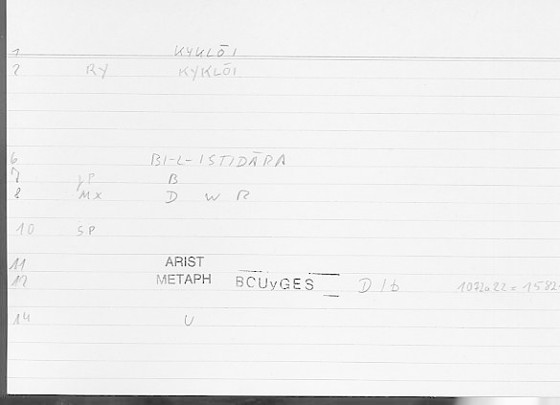 1 KYKLŌI
2 RY KYKLŌI
6 BI-L-ISTIDĀRA
7 JP B
8 MX D W R
10 SP
11 ARIST
12 METAPH BOUyGES D/b 1072a22 = 1582
14 U